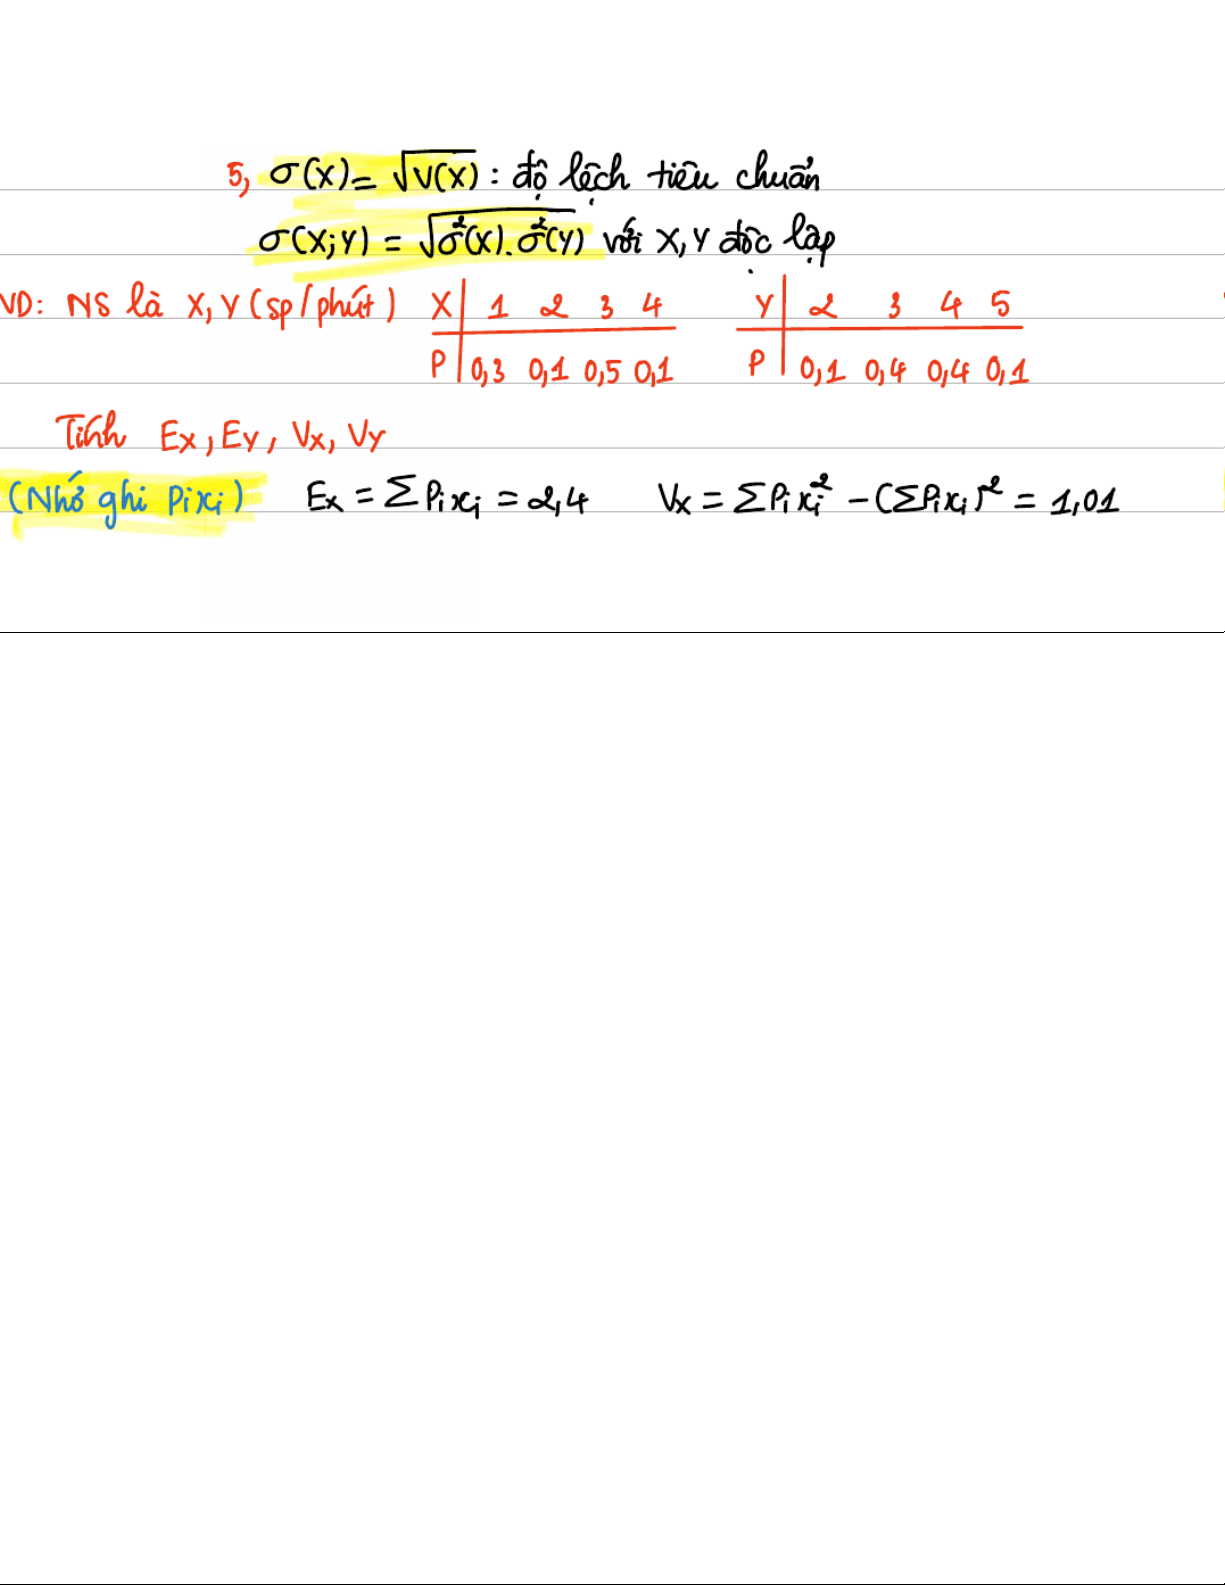 5, σ(X) = √V(X) : độ lệch tiêu chuẩn
σ(X;Y) = √σ²(X).σ²(Y) với X,Y độc lập
VD: NS là X,Y (sp/phút) X | 1 2 3 4 Y | 2 3 4 5
P | 0,3 0,1 0,5 0,1 P | 0,1 0,4 0,4 0,1
Tính Ex, Ey, Vx, Vy
(Nhớ ghi Pixi) Ex = ΣPixi = 2,4 Vx = ΣPixi² - (ΣPixi)² = 1,01